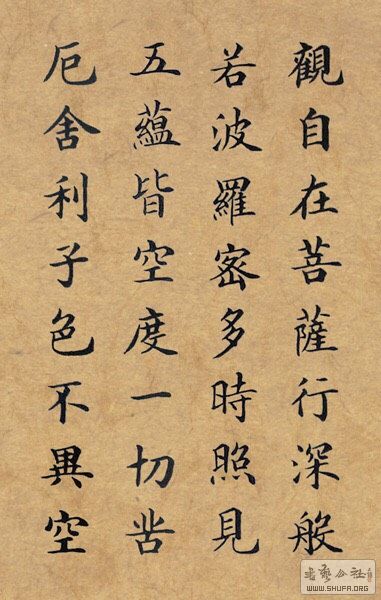 觀自在菩薩行深般
若波羅密多時照見
五蘊皆空度一切苦
厄舍利子色不異空
WWW.SHUFA.ORG